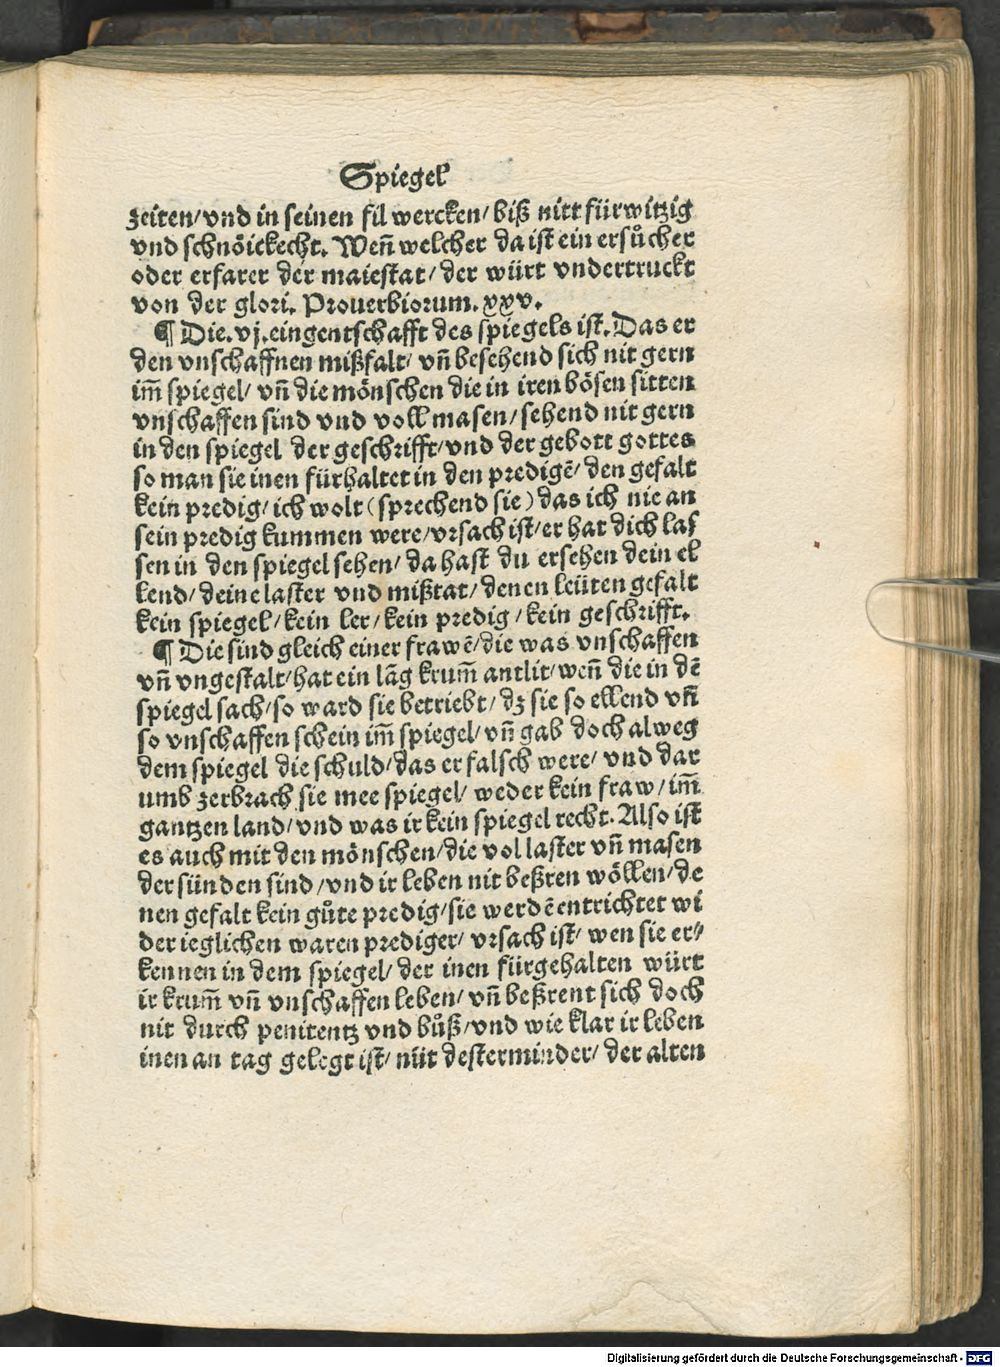 Spiegel
zeiten/vnd in seinen fil wercken/biß nitt fürwitzig
vnd schnöickecht. Weñ welcher da ist ein ersůcher
oder erfarer der maiestat/der würt vndertruckt
von der glori. Prouerbiorum.xxv.
¶ Die.vj.eingentschafft des spiegels ist. Das er
den vnschaffnen mißfalt/ vñ besehend sich nit gern
im̃ spiegel/ vñ die mönschen die in iren bösen sitten
vnschaffen sind vnd voll masen/sehend nit gern
in den spiegel der geschrifft/vnd der gebott gottes
so man sie inen fürhaltet in den predigẽ/den gefalt
kein predig/ich wolt(sprechend sie)das ich nie an
sein predig kummen were/vrsach ist/er hat dich las
sen in den spiegel sehen/da hast du ersehen dein el
lend/deine laster vnd mißtat/denen leüten gefalt
kein spiegel/kein ler/kein predig/kein geschrifft.
¶ Die sind gleich einer frawẽ/die was vnschaffen
vñ vngestalt/hat ein lãg krum̃ antlit/weñ die in dẽ
spiegel sach/so ward sie betriebt/dz sie so ellend vñ
so vnschaffen schein im̃ spiegel/vñ gab doch alweg
dem spiegel die schuld/das er falsch were/vnd dar
umb zerbrach sie mee spiegel/weder kein fraw/im̃
gantzen land/vnd was ir kein spiegel recht. Also ist
es auch mit den mönschen/die vol laster vñ masen
der sünden sind/vnd ir leben nit beßren wöllen/de
nen gefalt kein gůte predig/sie werdẽ entrichtet wi
der ieglichen waren prediger/vrsach ist/wen sie er/
kennen in dem spiegel/der inen fürgehalten würt
ir krum̃ vñ vnschaffen leben/vñ beßrent sich doch
nit durch penitentz vnd bůß/vnd wie klar ir leben
inen an tag gelegt ist/nüt desterminder/der alten
Digitalisierung gefördert durch die Deutsche Forschungsgemeinschaft - DFG